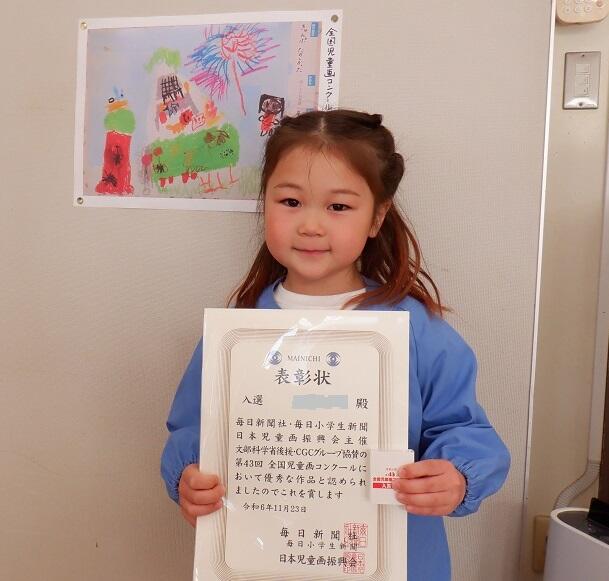 全国児童画コンクール
MAINICHI
表彰状
入選 殿
毎日新聞社・毎日小学生新聞
日本児童画振興会主催
文部科学省後援・CGCグループ協賛の
第43回 全国児童画コンクールに
おいて優秀な作品と認められ
ましたのでこれを賞します
令和6年11月23日
毎日新聞社
毎日小学生新聞
日本児童画振興会